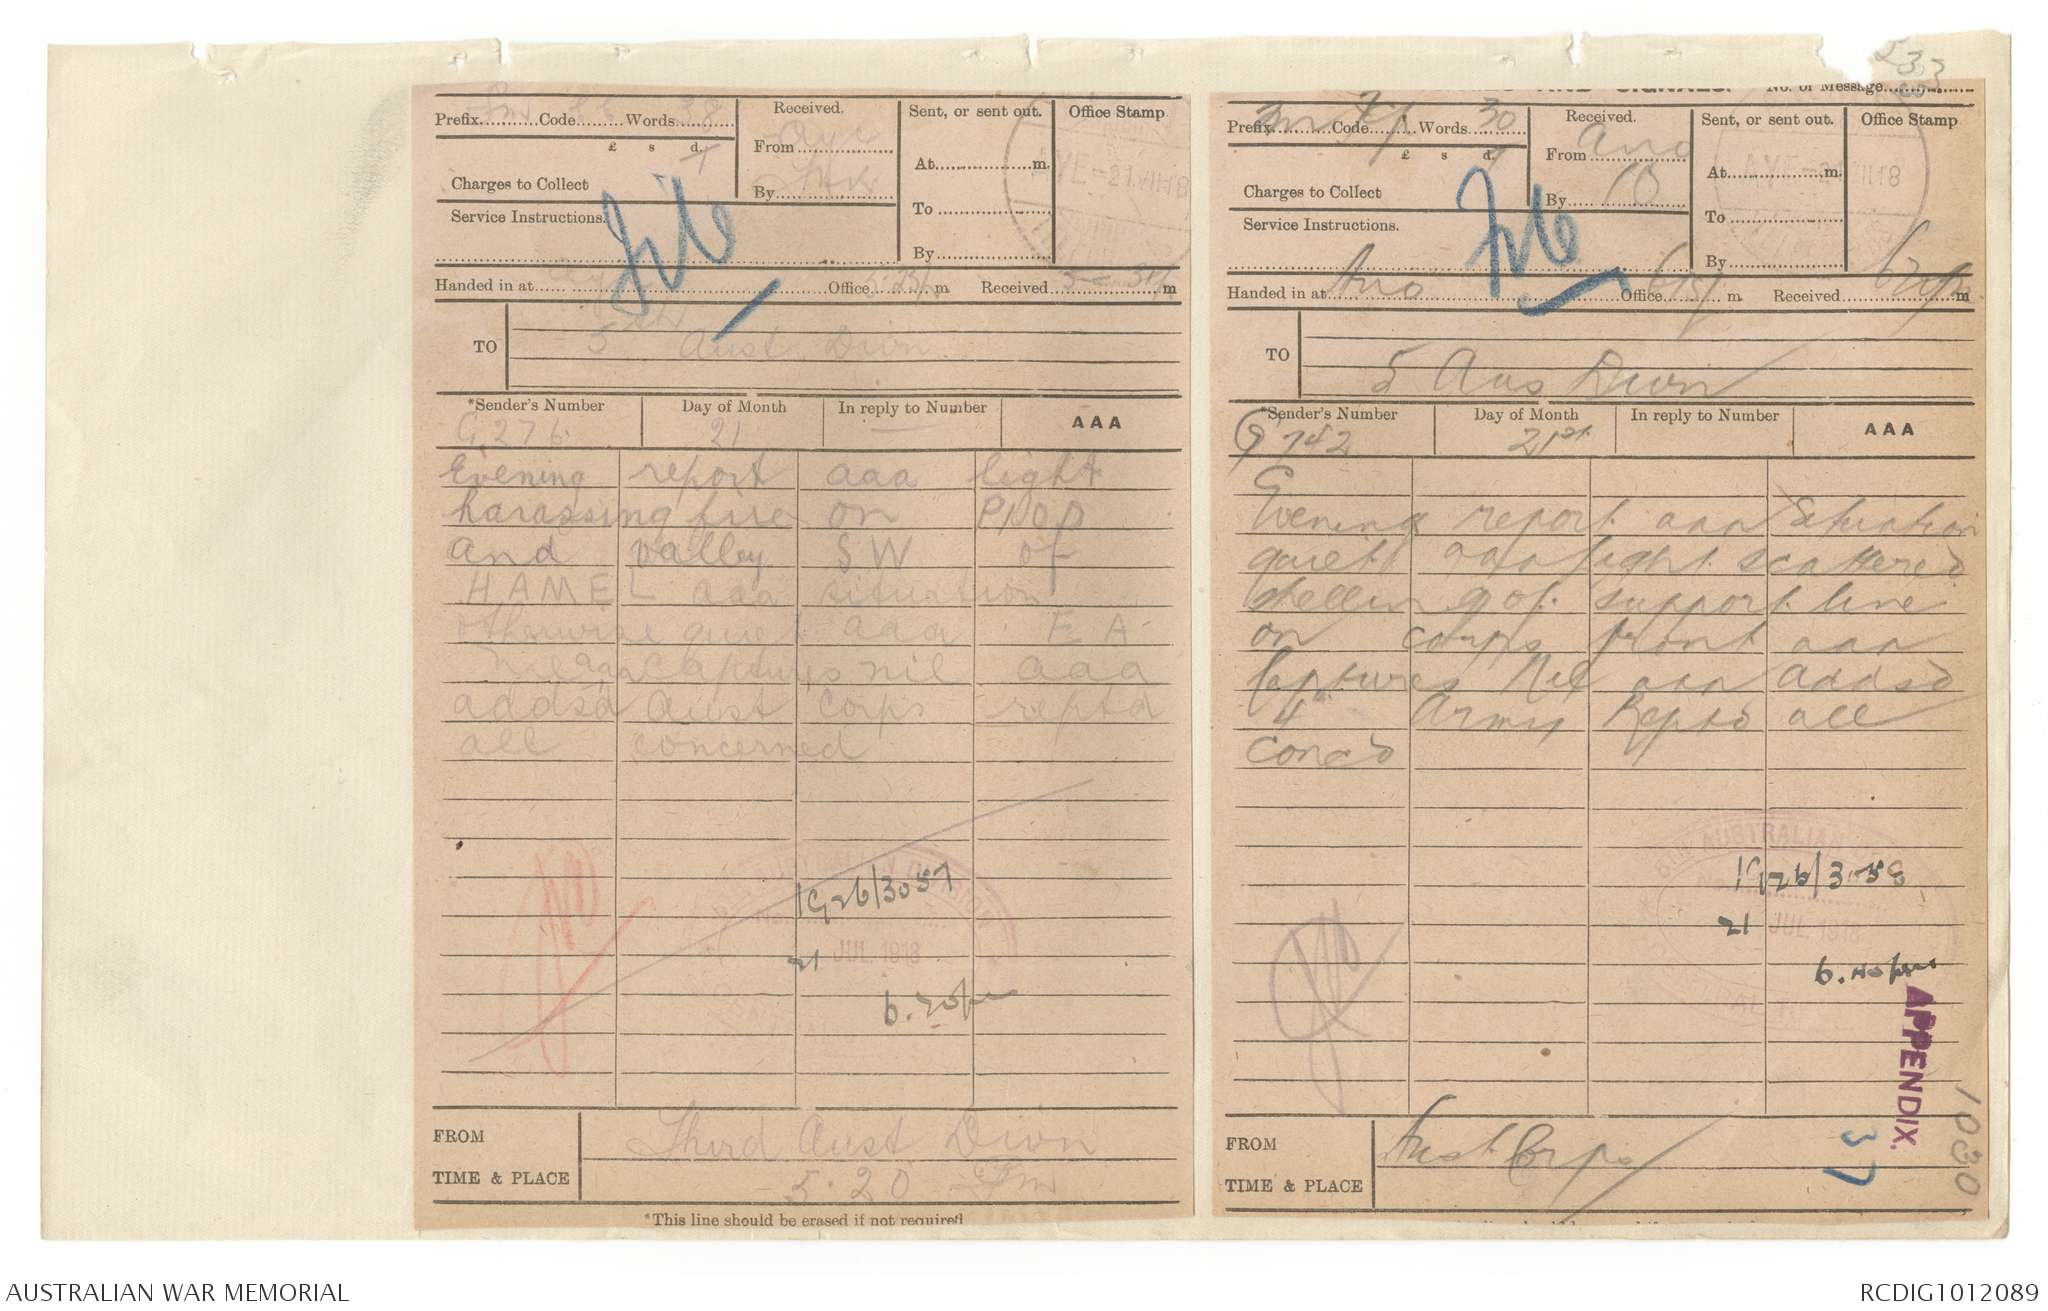 Prefix..........Code.........Words.......... 38
£ s d.
Charges to Collect
Service Instructions.
File
Received.
From Aye
By
Sent, or sent out.
At...............m.
To
By
Office Stamp
AYE-21.VII.18
Handed in at Office 5.23 p m Received m
TO
5th Aust Divn
*Sender's Number
G.276.
Day of Month
21
In reply to Number
AAA
Evening report aaa light
harassing fire on P10D
and valley SW of
HAMEL aaa situation
otherwise quiet aaa EA
nil aaa captures nil aaa
addsd Aust Corps reptd
all concerned
IG26/3057
21 JUL 1918
6.20pm
FROM
Third Aust Divn
TIME & PLACE
5.20 pm
*This line should be erased if not required
AND SIGNALS. No. of Message
Prefix Code Words 30
£ s d.
Charges to Collect
Service Instructions.
File
Received.
From Ano
By
Sent, or sent out.
At m.
To
By
Office Stamp
AYE-21.VII.18
Handed in at Ano Office m Received m
TO
5 Aus Divn
*Sender's Number
G 742
Day of Month
21st
In reply to Number
AAA
Evening report aaa Situation
quiet aaa light scattered
shelling of support line
on corps front aaa
Captures Nil aaa addsd
4th Army Reptd all
concd
5TH AUSTRALIAN
IG26/3058
21 JUL 1918
6.40pm
APPENDIX.
FROM
Aust Corps
TIME & PLACE
37
1030
AUSTRALIAN WAR MEMORIAL
RCDIG1012089